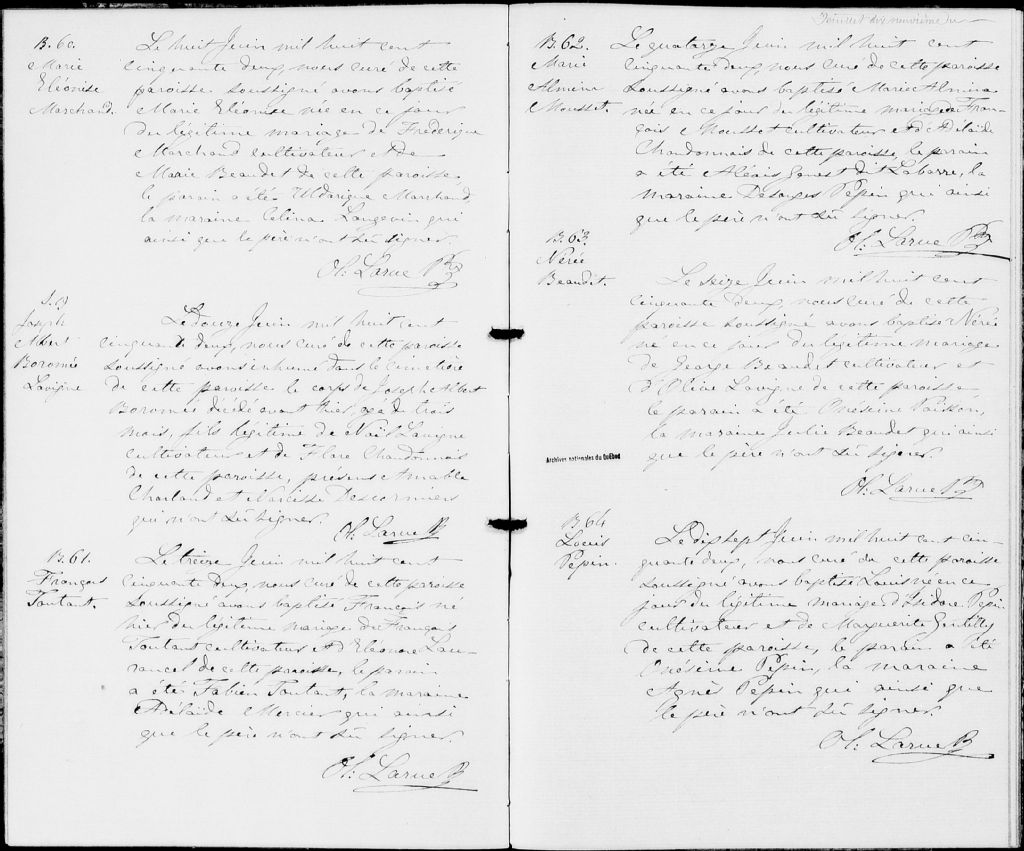 B. 60.
Marie
Eléonise
Marchand.
Le huit Juin mil huit cent
cinquante deux, nous curé de cette
paroisse soussigné avons baptisé
Marie Eléonise née en ce jour
du légitime mariage de Frédérique
Marchand cultivateur et de
Marie Beaudet de cette paroisse.
le parain a été Uldarique Marchand
la maraine Celina Langevin qui
ainsi que le père n'ont su signer.
Ol: Larue Ptre
S. B
Joseph
Albert
Boromée
Lavigne
Le Douze Juin mil huit cent
cinquante deux, nous curé de cette paroisse
soussigné avons inhumé dans le cimetière
de cette paroisse le corps de Joseph Albert
Boromée décédé avant hier, agé de trois
mois, fils légitime de Noël Lavigne
cultivateur et de Flore Chandonnais
de cette paroisse, présens Amable
Charland et Narcisse Descormiers
qui n'ont su signer.
Ol: Larue Ptre
B. 61.
François
Toutant.
Le treize Juin mil huit cent
cinquante deux, nous curé de cette paroisse
soussigné avons baptisé François né
hier du légitime mariage de François
Toutant cultivateur et d'Eléonore Lau-
rancel de cette paroisse, le parain
a été Fabien Toutant, la maraine
Adélaide Mercier qui ainsi
que le père n'ont su signer.
Ol: Larue Ptre
Feuillet dix neuvième
B. 62.
Marie
Almina
Mousset.
Le quatorze Juin mil huit cent
cinquante deux, nous curé de cette paroisse
soussigné avons baptisé Marie Almina
née en ce jour du légitime mariage de Fran-
çois Mousset cultivateur et d'Adélaide
Chandonnais de cette paroisse, le parrain
a été Alexis Genest dit Labarre, la
maraine Desanges Pépin qui ainsi
que le père n'ont su signer.
Ol: Larue Ptre
B. 63.
Nérée
Beaudet.
Le seize Juin mil huit cent
cinquante deux, nous curé de cette
paroisse soussigné avons baptisé Nérée
né en ce jour du légitime mariage
de George Beaudet cultivateur et
d'Olive Lavigne de cette paroisse
le parain a été Onéseine Poisson,
la maraine Julie Beaudet qui ainsi
que le père n'ont su signer.
Ol: Larue Ptre
Archives nationales du Québec
B. 64
Louis
Pépin.
Le dix sept Juin mil huit cent cin-
quante deux, nous curé de cette paroisse
soussigné avons baptisé Louis né en ce
jour du légitime mariage d'Isidore Pépin
cultivateur et de Marguerite Gentilly
de cette paroisse, le parain a été
Onéseine Pépin, la maraine
Agnès Pépin qui ainsi que
le père n'ont su signer.
Ol: Larue Ptre